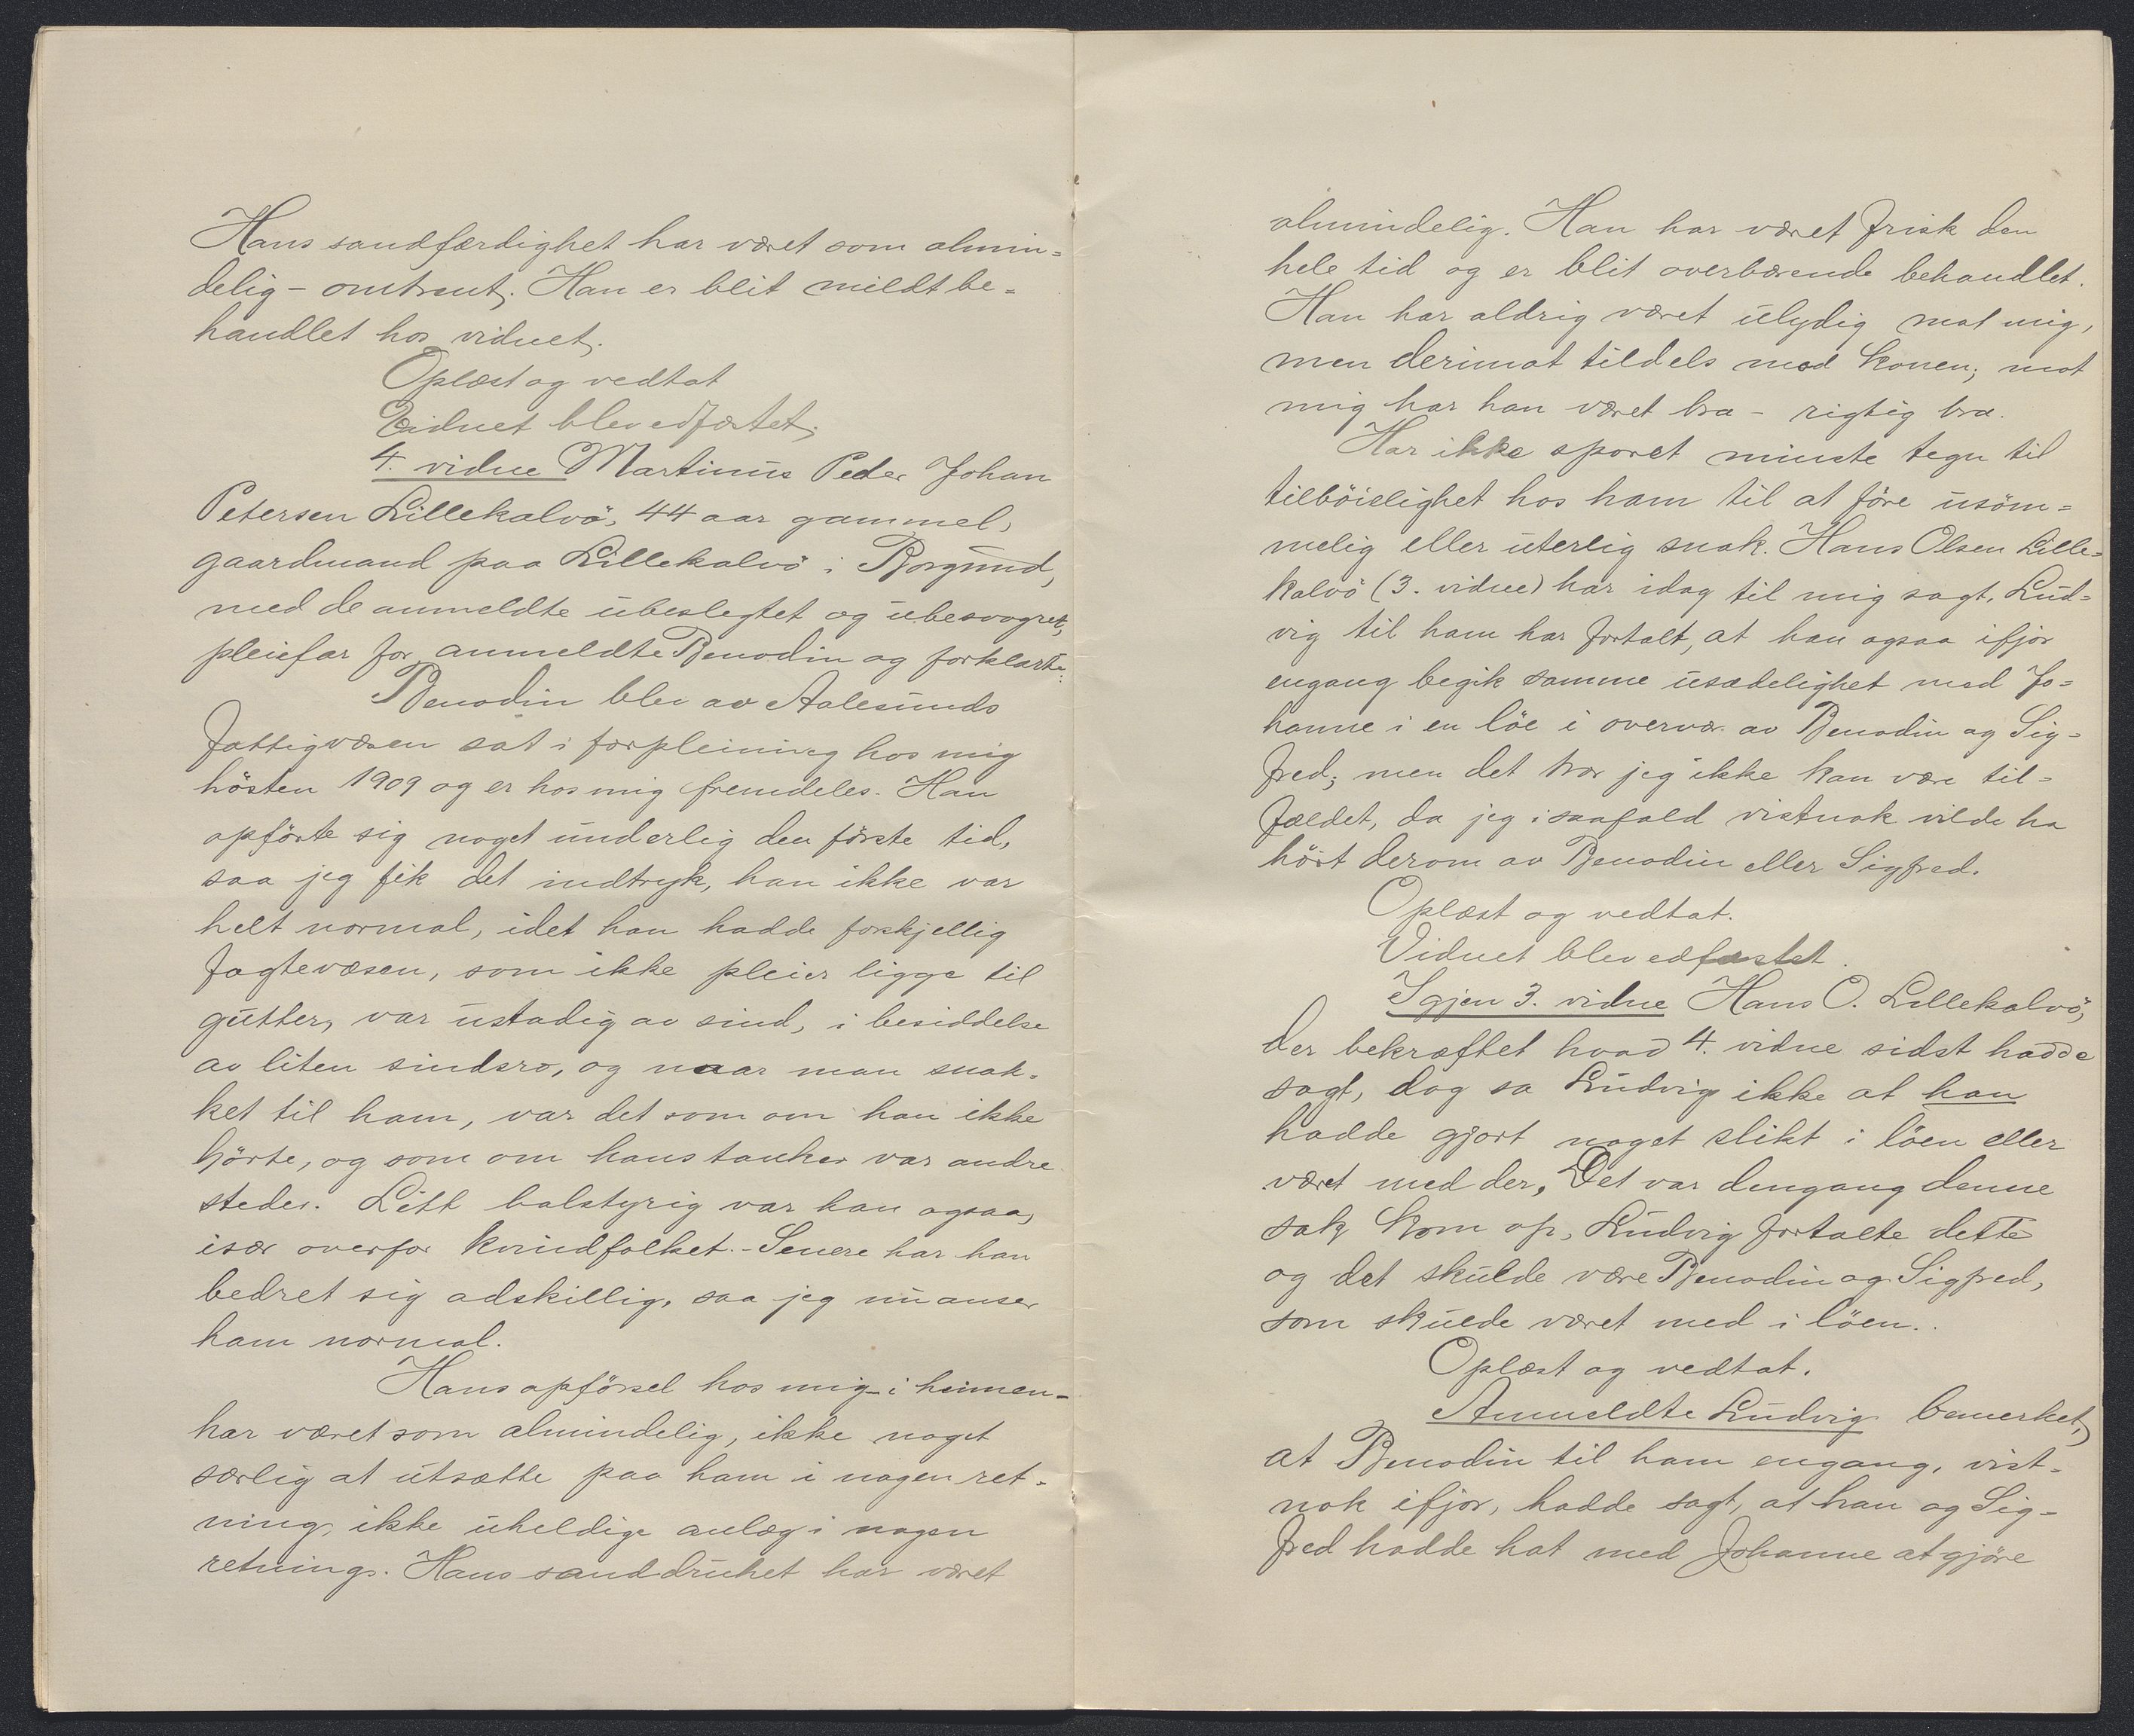 Hans sandfærdighet har været som almin=
delig - omtrent. Han er blit mildt be=
handlet hos vidnet.
Oplæst og vedtat
Vidnet blev edfæstet.
4. vidne Martinus Peder Johan
Petersen Lillekalvö, 44 aar gammel,
gaardmand paa Lillekalvö i Borgund,
med de anmeldte ubeslegtet og ubesvogret,
pleiefar for anmeldte Benodin og forklarte:
Benodin blev av Aalesunds
Fattigvæsen sat i forpleining hos mig
hösten 1909 og er hos mig fremdeles. Han
opförte sig noget underlig den förste tid,
saa jeg fik det indtryk, han ikke var
helt normal, idet han hadde forskjellig
fagtevæsen, som ikke pleier ligge til
gutter, var ustadig av sind, i besiddelse
av liten sindsro, og naar man snak=
ket til ham, var det som om han ikke
hörte, og som om hans tanker var andre
steder. Litt balstyrig var han ogsaa,
især overfor kvindfolket. - Senere har han
bedret sig adskillig, saa jeg nu anser
ham normal.
Hans opförsel hos mig - i heimen -
har været som almindelig, ikke noget
særlig at utsætte paa ham i nogen ret=
ning, ikke uheldige anlæg i nogen
retning. Hans sanddruhet har været
almindelig. Han har været frisk den
hele tid og er blit overbærende behandlet.
Han har aldrig været ulydig mot mig,
men derimot tildels mod konen; mot
mig har han været bra - rigtig bra.
Har ikke sporet minste tegn til
tilböielighet hos ham til at före usöm=
melig eller uterlig snak. Hans Olsen Lille=
kalvö (3. vidne) har idag til mig sagt, Lud=
vig til ham har fortalt, at han ogsaa ifjor
engang begik samme usædelighet med Jo=
hanne i en löe i overvær av Benodin og Sig=
fred; men det tror jeg ikke kan være til=
fældet, da jeg i saafald vistnok vilde ha
hört derom av Benodin eller Sigfred.
Oplæst og vedtat.
Vidnet blev edfæstet.
Igjen 3. vidne Hans O. Lillekalvö,
der bekræftet hvad 4. vidne sidst hadde
sagt, dog sa Ludvig ikke at han
hadde gjort noget slikt i löen eller
været med der. Det var dengang denne
sak kom op, Ludvig fortalte dette
og det skulde være Benodin og Sigfred,
som skulde været med i löen.
Oplæst og vedtat.
Anmeldte Ludvig bemerket,
at Benodin til ham engang, vist=
nok ifjor, hadde sagt, at han og Sig=
fred hadde hat med Johanne at gjöre